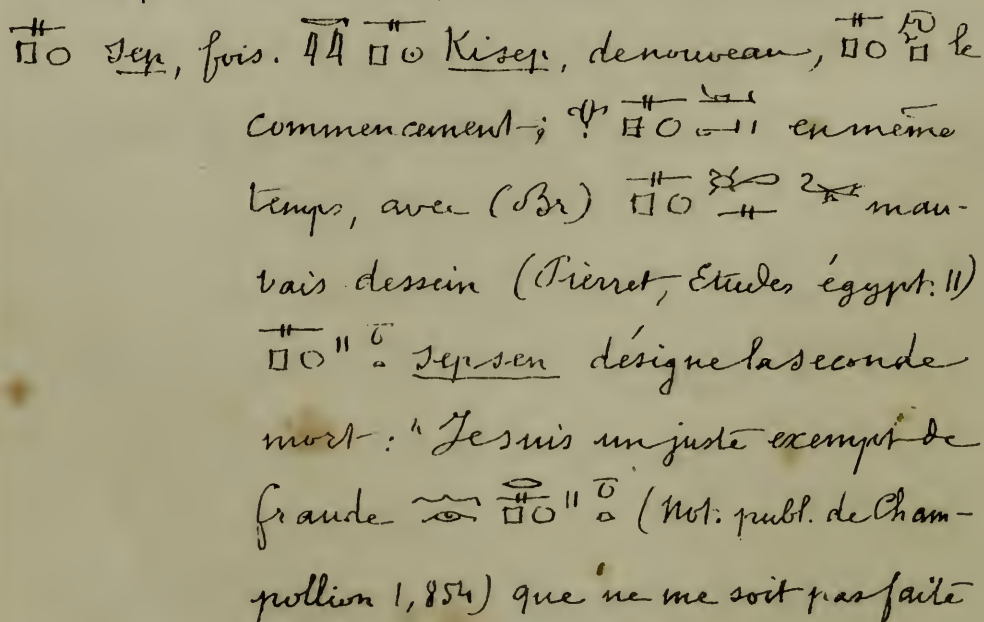 Sep, fois. Kisep, de nouveau, le
commencement; en même
temps, avec (Br) mau-
vais dessein (Pierret, Etudes égypt. II)
Sepsen désigne la seconde
mort : "Je suis un juste exempt de
fraude (Not. publ. de Cham-
pollion 1,854) que ne me soit pas faite